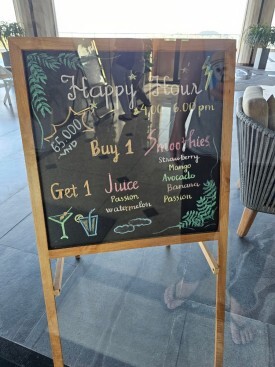 Happy Hour
4.00 - 6.00 pm
65.000
VND
Buy 1 Smoothies
Strawberry
Mango
Avocado
Banana
Passion
Get 1 Juice
Passion
watermelon